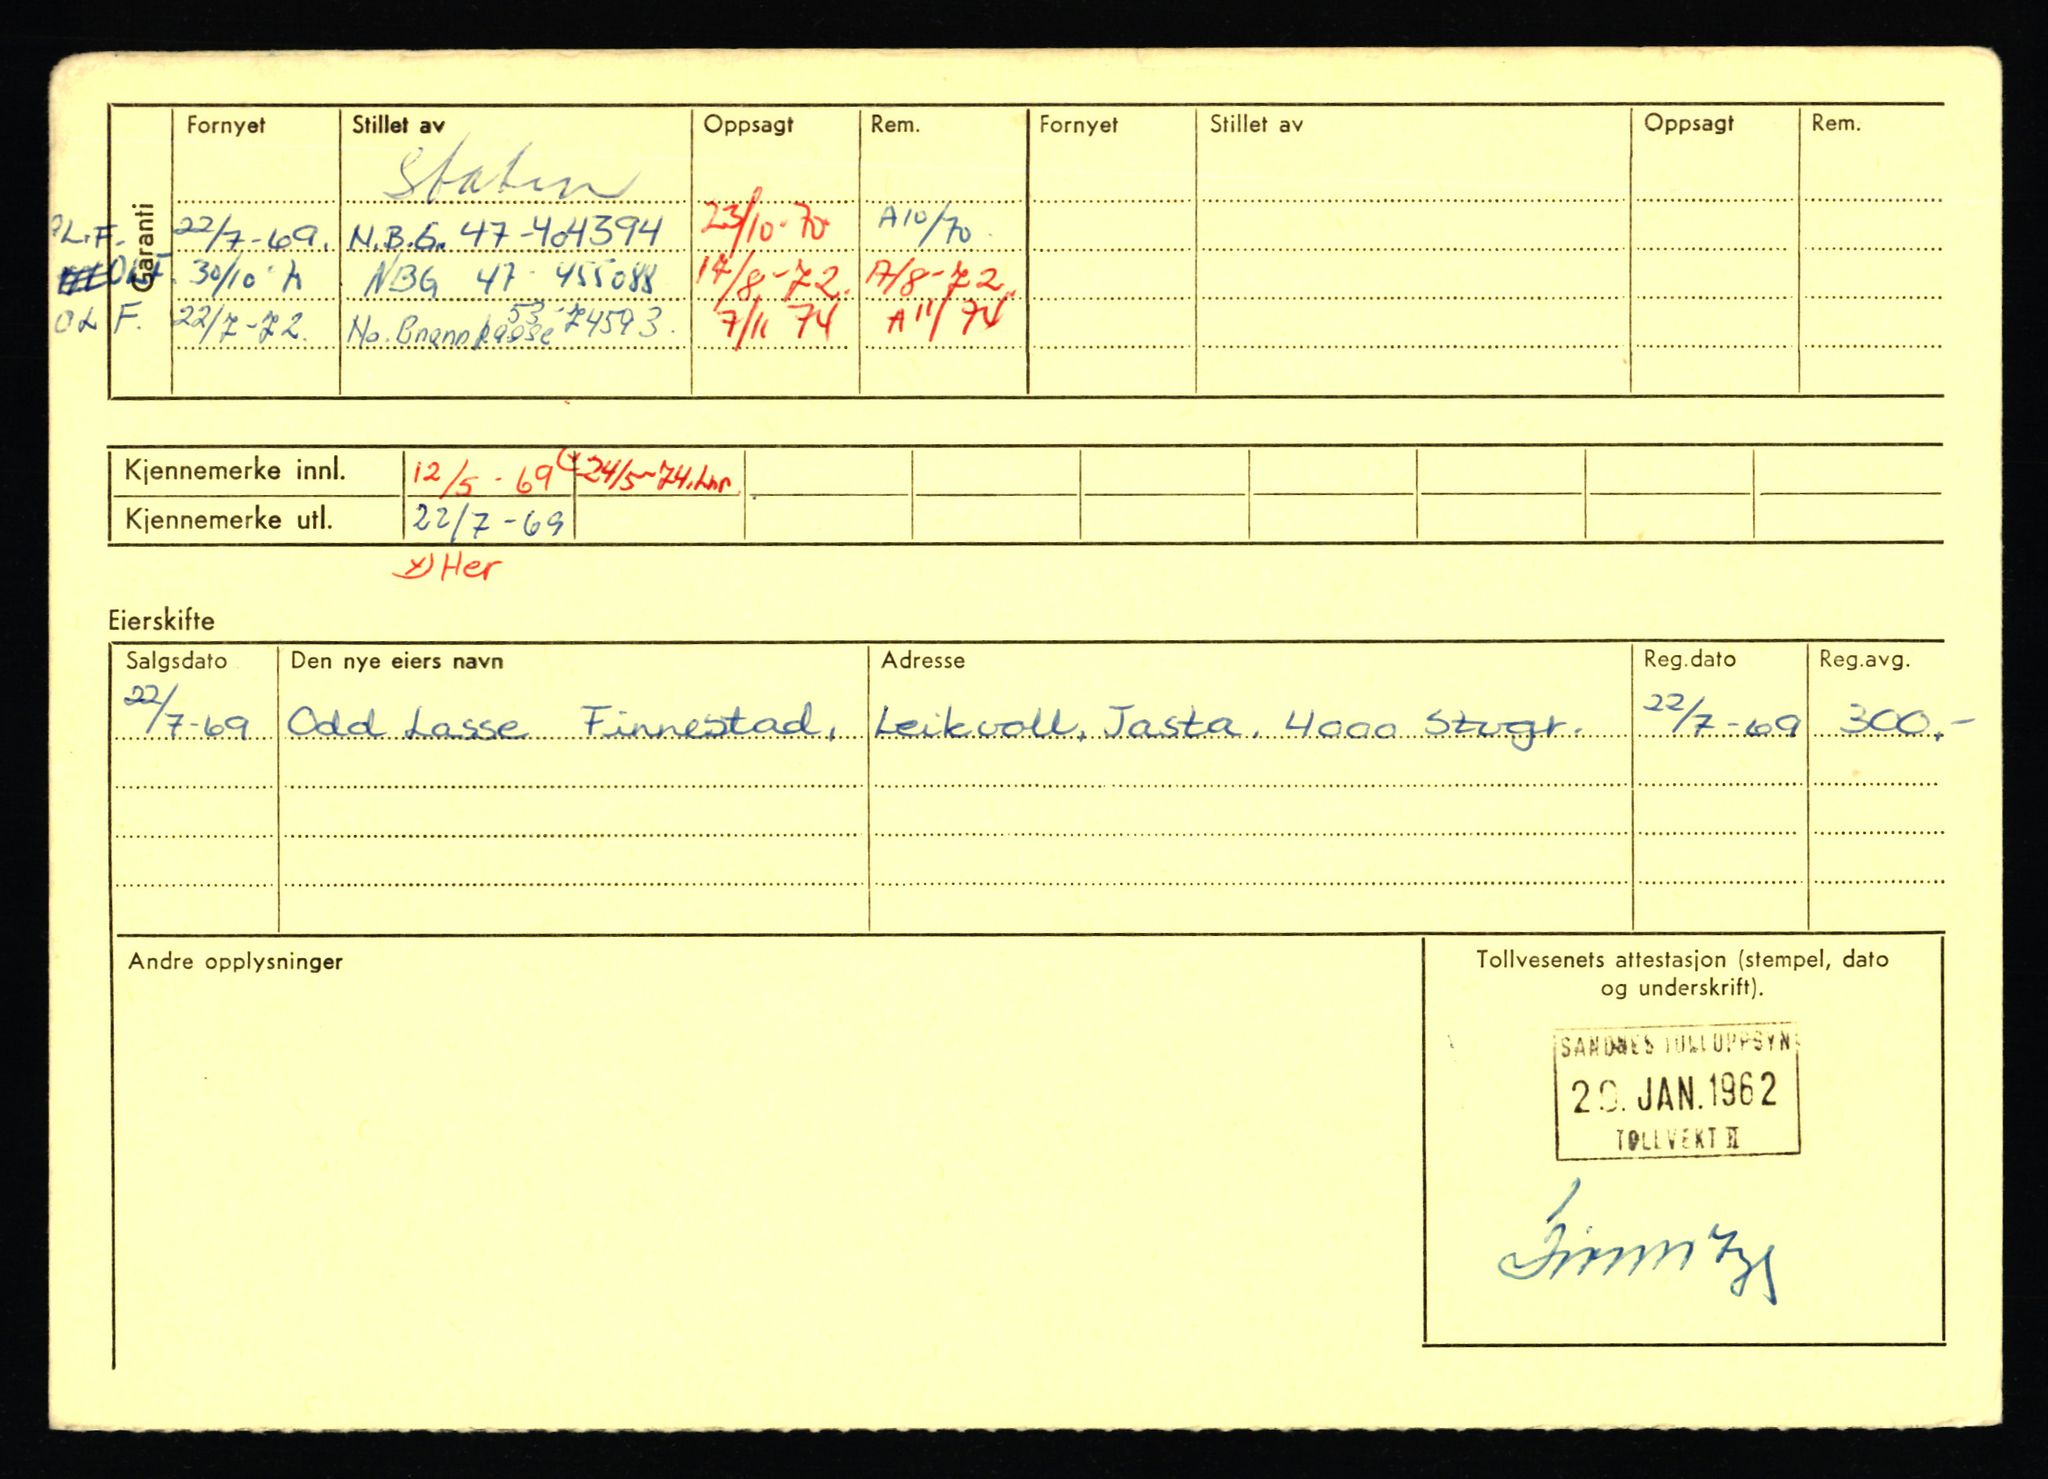 Garanti
Fornyet Stillet av Oppsagt Rem. Fornyet Stillet av Oppsagt Rem.
Staten
O.L.F. 22/7-69. N.B.G. 47-404394 23/10-70 A10/70
OLF. 30/10 NBG 47-455088 17/8-72. A/8-72
OLF. 22/7-72. No. Brannkasse 53-74593. 7/11 74 A11/74
Kjennemerke innl. 12/5-69 x) 24/5-74. Lnr.
Kjennemerke utl. 22/7-69
x) Her
Eierskifte
Salgsdato Den nye eiers navn Adresse Reg.dato Reg.avg.
22/7-69 Odd Lasse Finnestad, Leikvoll, Jasta. 4000 Stvgr. 22/7-69 300,-
Andre opplysninger
Tollvesenets attestasjon (stempel, dato
og underskrift).
SANDNES TOLLOPPSYN
JAN. 1962
TOLLVEKT II